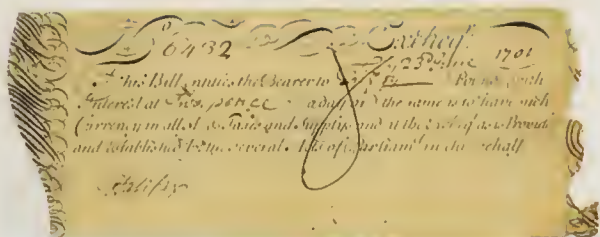 6432 Excheqr.
23d June 1701
This Bill entitles the Bearer to Pounds with
Interest at Two pence a day and the same is to have such
Currency in all Taxes and Supplys and at the as is Provided
and established by the several Acts of Parliamt. in that behalf
Halifax